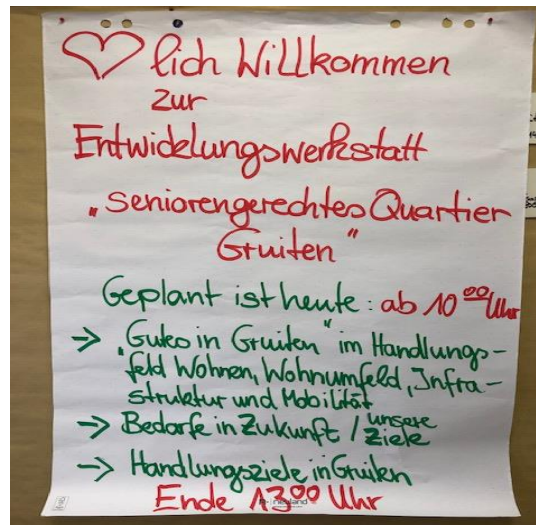 ♡lich Willkommen
zur
Entwicklungswerkstatt
"Seniorengerechtes Quartier
Gruiten"
Geplant ist heute: ab 10⁰⁰ Uhr
→ "Gutes in Gruiten" im Handlungs-
feld Wohnen, Wohnumfeld, Infra-
struktur und Mobilität
→ Bedarfe in Zukunft / unsere Ziele
→ Handlungsziele in Gruiten
Ende 13⁰⁰ Uhr
neuland